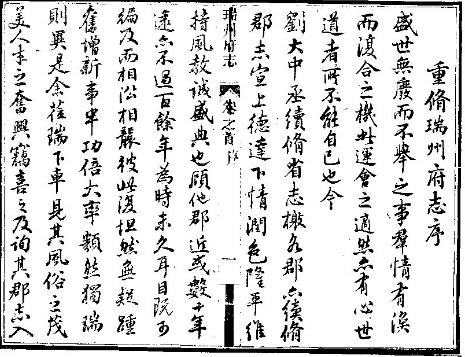 重脩瑞州府志序
盛世無廢而不舉之事羣情有渙
而復合之機此運會之適然亦有心世
道者所不能自已也今
劉大中丞續脩省志檄各郡亦續脩
郡志宣上德達下情潤色隆平維
瑞州府志
卷之首 序
一
持風教誠盛典也顧他郡近或數十年
遠亦不過百餘年為時未久耳目既可
徧及而相沿相襲彼此復坦然無疑踵
舊增新事半功倍大率類然獨瑞
則異是余莅瑞下車見其風俗之茂
美人才之奮興竊喜之及詢其郡志入